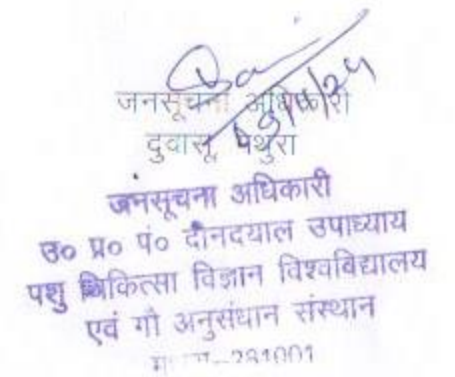 जनसूचना अधिकारी
दुवासू, मथुरा
जनसूचना अधिकारी
उ० प्र० पं० दीनदयाल उपाध्याय
पशु चिकित्सा विज्ञान विश्वविद्यालय
एवं गौ अनुसंधान संस्थान
281001